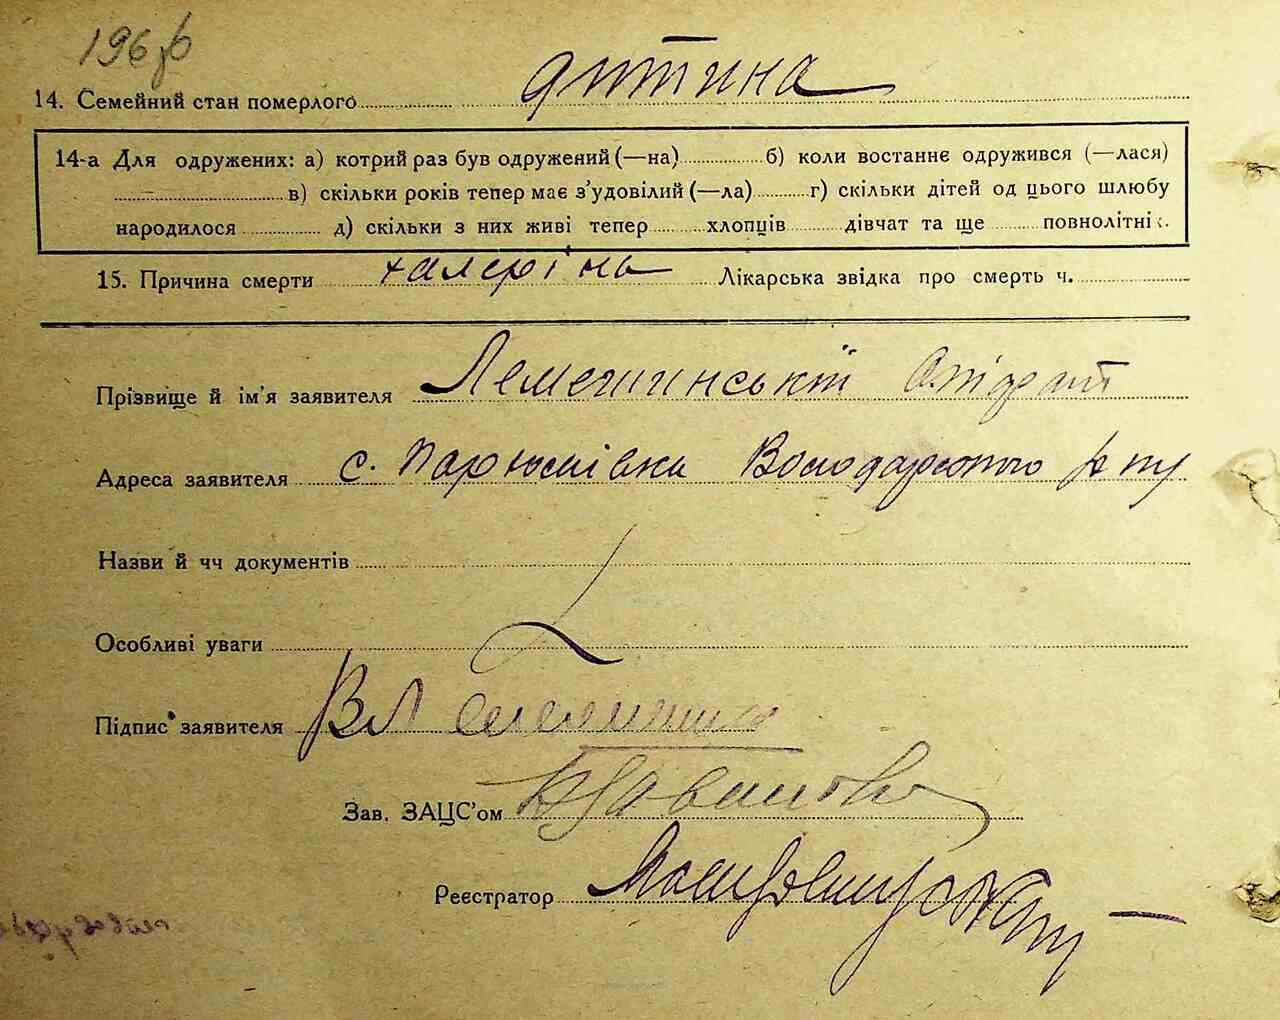 196
14. Семейний стан померлого дитина
14-а Для одружених: а) котрий раз був одружений (—на) б) коли востаннє одружився (—лася)
в) скільки років тепер має з'удовілий (—ла) г) скільки дітей од цього шлюбу
народилося д) скільки з них живі тепер хлопців дівчат та ще повнолітніх.
15. Причина смерти халеріна Лікарська звідка про смерть ч.
Прізвище й ім'я заявителя Лемешинський
Адреса заявителя с. Володарського р ну
Назви й чч документів
Особливі уваги
Підпис заявителя
Зав. ЗАЦС'ом
Реєстратор